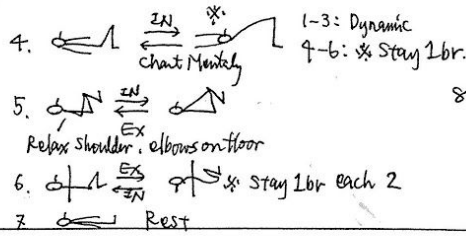 4. IN ※. 1-3: Dynamic
Chant Mentally 4-6: ※ Stay 1br.
5. IN 8
EX
Relax Shoulder, elbows on floor
6. EX IN ※ Stay 1br each 2
7 Rest